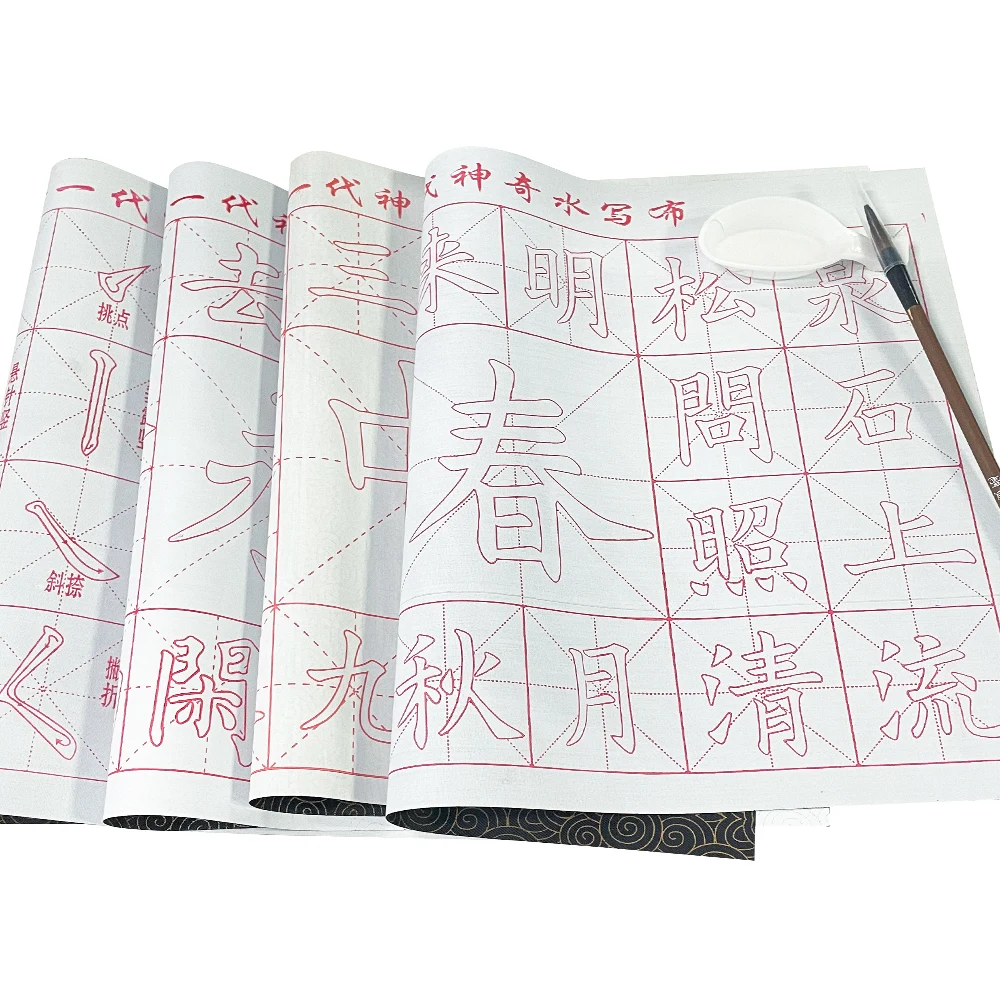 一代
挑点
悬针竖
斜捺
折
一代
去
閑
一代神
三
九
神奇水写布
明松泉
春間石
照上
秋月清流